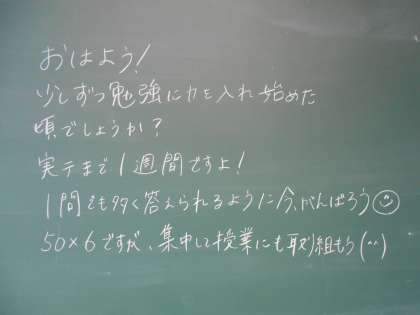 おはよう!
少しずつ勉強に力を入れ始めた
頃でしょうか?
実テまで1週間ですよ!
1問でも多く答えられるように今、がんばろう☺
50×6ですが、集中して授業にも取り組もう(^^)